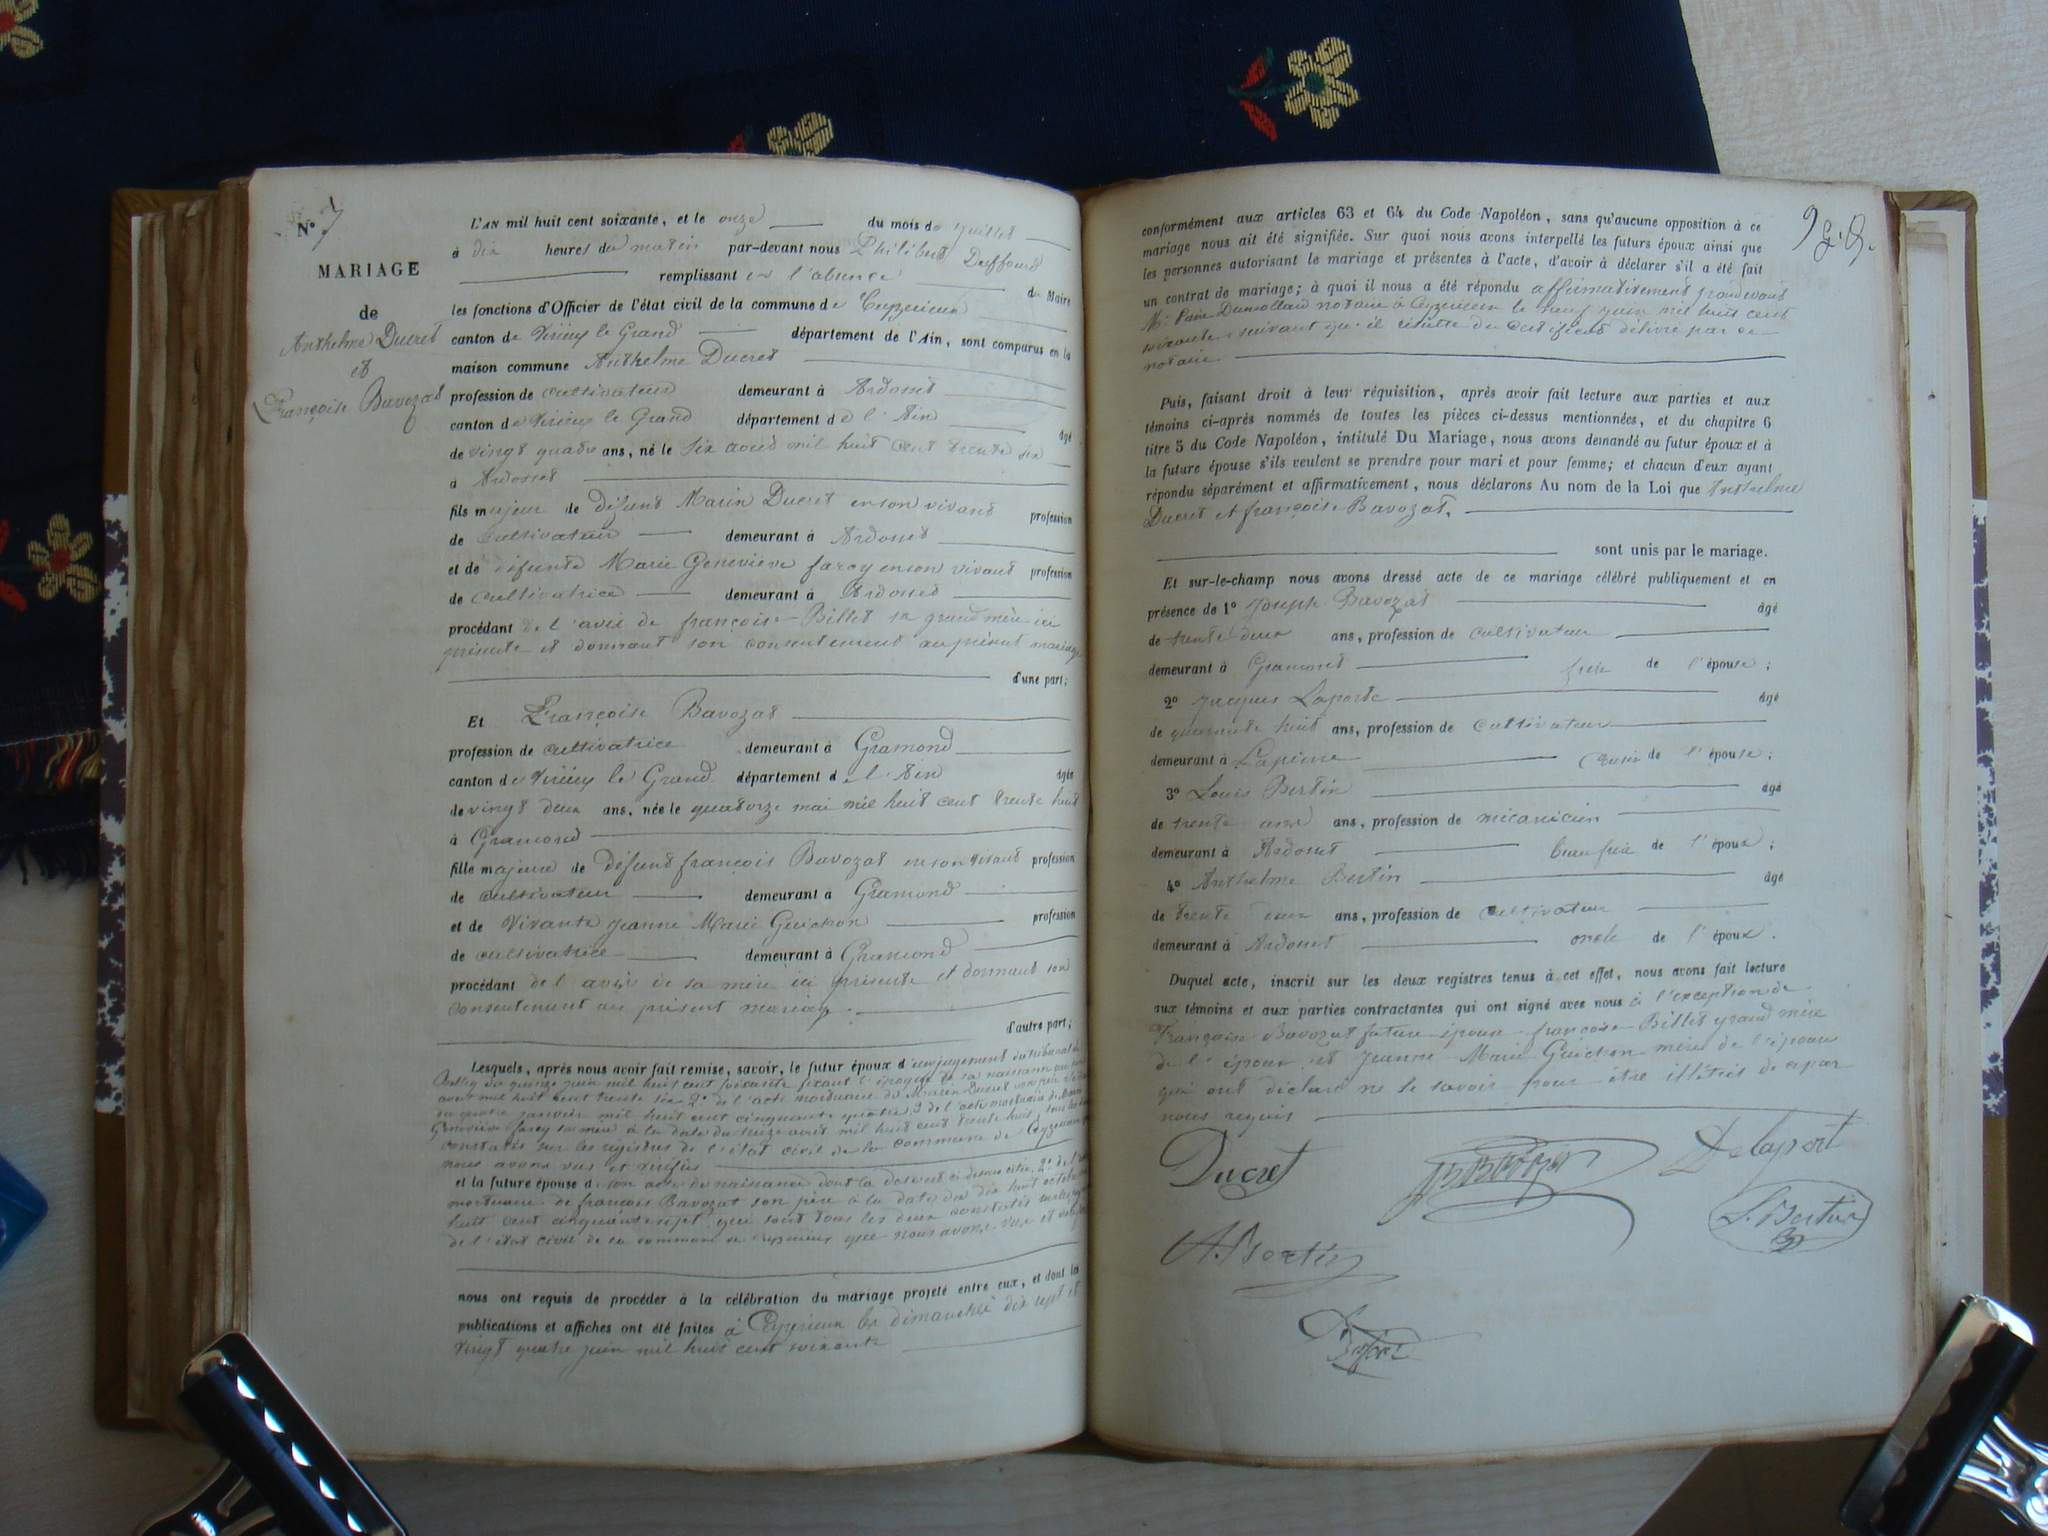 N° 7
MARIAGE
de
Anthelme Ducret
et
Françoise Bavozat
L'AN mil huit cent soixante, et le onze du mois de juillet
à dix heures du matin par-devant nous Philibert
remplissant en l'absence du Maire
les fonctions d'Officier de l'état civil de la commune de Ceyzerieux
canton de Virieu le Grand département de l'Ain, sont comparus en la
maison commune Anthelme Ducret
profession de cultivateur demeurant à Ardosset
canton de Virieu le Grand département de l'Ain âgé
de vingt quatre ans, né le six août mil huit cent trente six
à Ardosset
fils majeur de défunt Marin Ducret en son vivant profession
de cultivateur demeurant à Ardosset
et de défunte Marie Geneviève farcy en son vivant profession
de cultivatrice demeurant à Ardosset
procédant de l'avis de françoise Billet sa grand mère ici
présente et donnant son consentement au présent mariage
d'une part;
Et Françoise Bavozat
profession de cultivatrice demeurant à Gramond
canton de Virieu le Grand département de l'Ain âgée
de vingt deux ans, née le quatorze mai mil huit cent trente huit
à Gramond
fille majeure de défunt françois Bavozat en son vivant profession
de cultivateur demeurant à Gramond
et de Vivante Jeanne Marie Guichon profession
de cultivatrice demeurant à Gramond
procédant de l'avis de sa mère ici présente et donnant son
consentement au présent mariage.
d'autre part;
Lesquels, après nous avoir fait remise, savoir, le futur époux d'un jugement du tribunal de
Belley du quinze juin mil huit cent soixante fixant l'époque de sa naissance au six
août mil huit cent trente six 2° de l'acte mortuaire de Marin Ducret son père
du quatre janvier mil huit cent cinquante quatre 3° de l'acte mortuaire de Marie
Geneviève farcy sa mère à la date du treize août mil huit cent trente huit, tous les deux
constatés sur les registres de l'état civil de la commune de Ceyzerieux
nous avons vus et vérifiés
et la future épouse de son acte de naissance dont la date est ci dessus citée, 2° de l'acte
mortuaire de françois Bavozat son père à la date du dix huit octobre
huit cent cinquante sept que sont tous les deux constatés sur les
de l'état civil de la commune de Ceyzerieux que nous avons vus et
nous ont requis de procéder à la célébration du mariage projeté entre eux, et dont les
publications et affiches ont été faites à Ceyzerieux les dimanches dix sept et
vingt quatre juin mil huit cent soixante
9
conformément aux articles 63 et 64 du Code Napoléon, sans qu'aucune opposition à ce
mariage nous ait été signifiée. Sur quoi nous avons interpellé les futurs époux ainsi que
les personnes autorisant le mariage et présentes à l'acte, d'avoir à déclarer s'il a été fait
un contrat de mariage; à quoi il nous a été répondu affirmativement pardevant
Me notaire à Ceyzerieux le neuf juin mil huit cent
soixante, suivant qu'il résulte du certificat délivré par ce
notaire
Puis, faisant droit à leur réquisition, après avoir fait lecture aux parties et aux
témoins ci-après nommés de toutes les pièces ci-dessus mentionnées, et du chapitre 6
titre 5 du Code Napoléon, intitulé Du Mariage, nous avons demandé au futur époux et à
la future épouse s'ils veulent se prendre pour mari et pour femme; et chacun d'eux ayant
répondu séparément et affirmativement, nous déclarons Au nom de la Loi que Anthelme
Ducret et françoise Bavozat.
sont unis par le mariage.
Et sur-le-champ nous avons dressé acte de ce mariage célébré publiquement et en
présence de 1° Joseph Bavozat âgé
de trente deux ans, profession de cultivateur
demeurant à Gramond frère de l'épouse;
2° Jacques Laporte âgé
de quarante huit ans, profession de cultivateur
demeurant à Lapierre cousin de l'épouse;
3° Louis Bertin âgé
de trente ans, profession de mécanicien
demeurant à Ardosset beau frère de l'époux;
4° Anthelme Bertin âgé
de trente deux ans, profession de cultivateur
demeurant à Ardosset oncle de l'époux.
Duquel acte, inscrit sur les deux registres tenus à cet effet, nous avons fait lecture
aux témoins et aux parties contractantes qui ont signé avec nous à l'exception de
Françoise Bavozat future épouse françoise Billet grand mère
de l'époux et Jeanne Marie Guichon mère de l'épouse
qui ont déclaré ne le savoir pour être illétrés de ce par
nous requis
Ducret
JBBavozat
Delaport
A. Bertin
L. Bertin